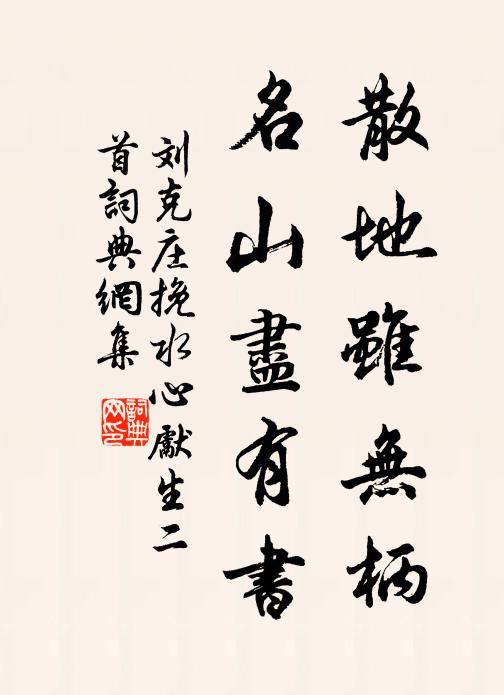 散地雖無柄
名山盡有書
刘克庄挽水心獻生二
首詞典網集
詞典
網印